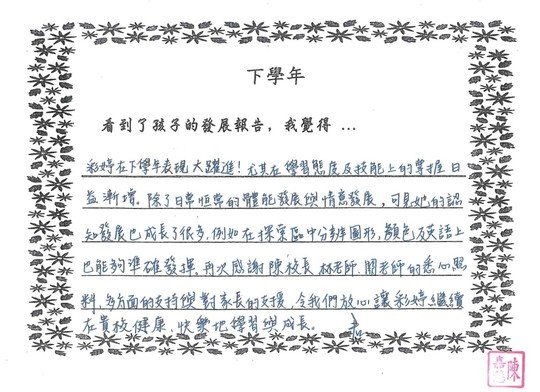 下學年
看到了孩子的發展報告，我覺得 ...
彩婷在下學年表現大躍進！尤其在學習態度及技能上的掌握日
益漸增。除了日常恒常的體能發展與情意發展，可見她的認
知發展也成長了很多，例如在探索區中分辨圖形，顏色及英語上
也能夠準確發揮。再次感謝陳校長、林老師、關老師的悉心照
料，多方面的支持與對家長的支援，令我們放心讓彩婷繼續
在貴校健康、快樂地學習與成長。
陳